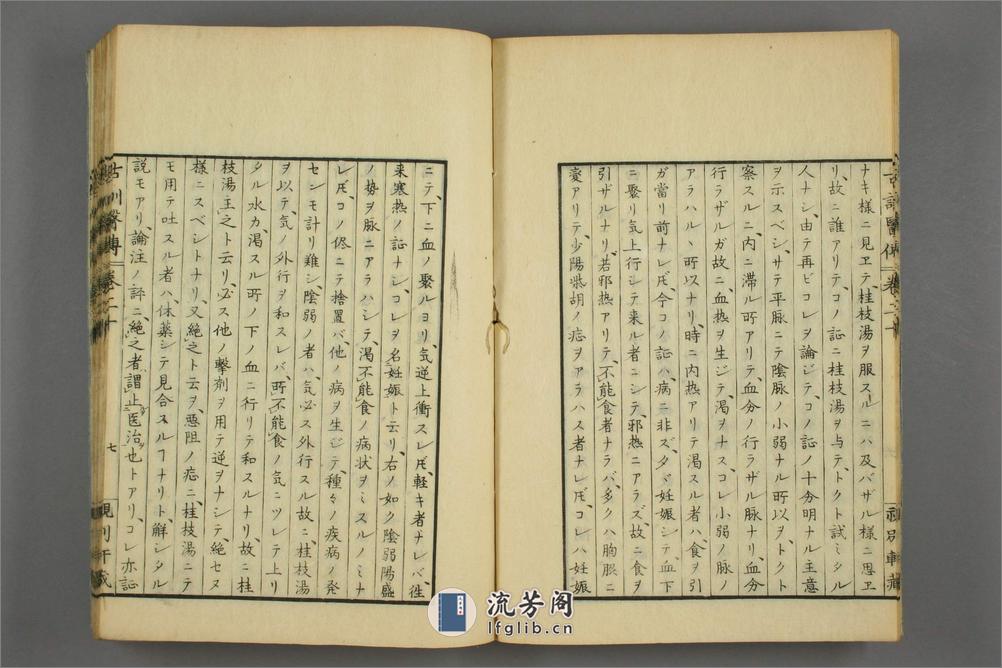 ナキ様ニ見ヱテ桂枝湯ヲ服スルニハ及バザル様ニ思ヱ
リ、故ニ誰アリテ、コノ証ニ桂枝湯ヲ与テ、トクト試ミシル
人ナシ、由テ再ビコレヲ論ジテ、コノ証ノ十分明ナル主意
ヲ示スベシ、サテ平脉ニテ陰脉ノ小弱ナル所以ヲ、トクト
察スルニ、内ニ滞ル所アリテ、血分ノ行ラザル脉ナリ、血分
行ラザルガ故ニ、血熱ヲ生ジテ、渇ヲナス、コレ小弱ノ脉
アラハルヽ所以ナリ、時ニ内熱アリテ渇スル者ハ、食ヲ引
ガ当リ前ナレ𪜈、今コノ証ハ、病ニ非ズ、タヾ妊娠シテ、血下
ニ聚リ、気上行シテ来ル者ニシテ、邪熱ニアラズ、故ニ食ヲ
引ザルナリ、若邪熱アリテ、不能食者ナラバ、多クハ胸脹ニ
橐アリテ、少陽柴胡ノ症ヲ、アラハス者ナレ𪜈、コレハ妊娠
ニテ、下ニ血ノ聚ルヨリ、気逆上衝スレ𪜈、軽キ者ナレバ、往
来寒熱ノ証ナシ、コレヲ名妊娠ト云リ、右ノ如ク陰弱陽盛
ノ勢ヲ脉ニアラハシテ、渇不能食ノ病状ヲミスルノミナ
レ𪜈、コノ侭ニテ捨置バ、他ノ病ヲ生ジテ、種々ノ疾病ノ発
センモ計リ難シ、陰弱ノ者ハ、気必ス外行スル故ニ、桂枝湯
ヲ以テ、気ノ外行ヲ和スレバ、所不能食ノ気ニツレテ上リ
タル水カ、渇スル所ノ下ノ血ニ行リテ和スルナリ、故ニ桂
枝湯主之ト云リ、必ス他ノ撃剤ヲ用テ逆ヲナシテ、絶セヌ
様ニスベシトナリ、又絶之ト云ヲ、悪阻ノ症ニ、桂枝湯ニテ
モ用テ吐スル者ハ、休薬シテ見合スルヿナリト、解シタル
説モアリ、論注ノ評ニ、絶之者、謂止医治也トアリ、コレ亦証
卷二十
七